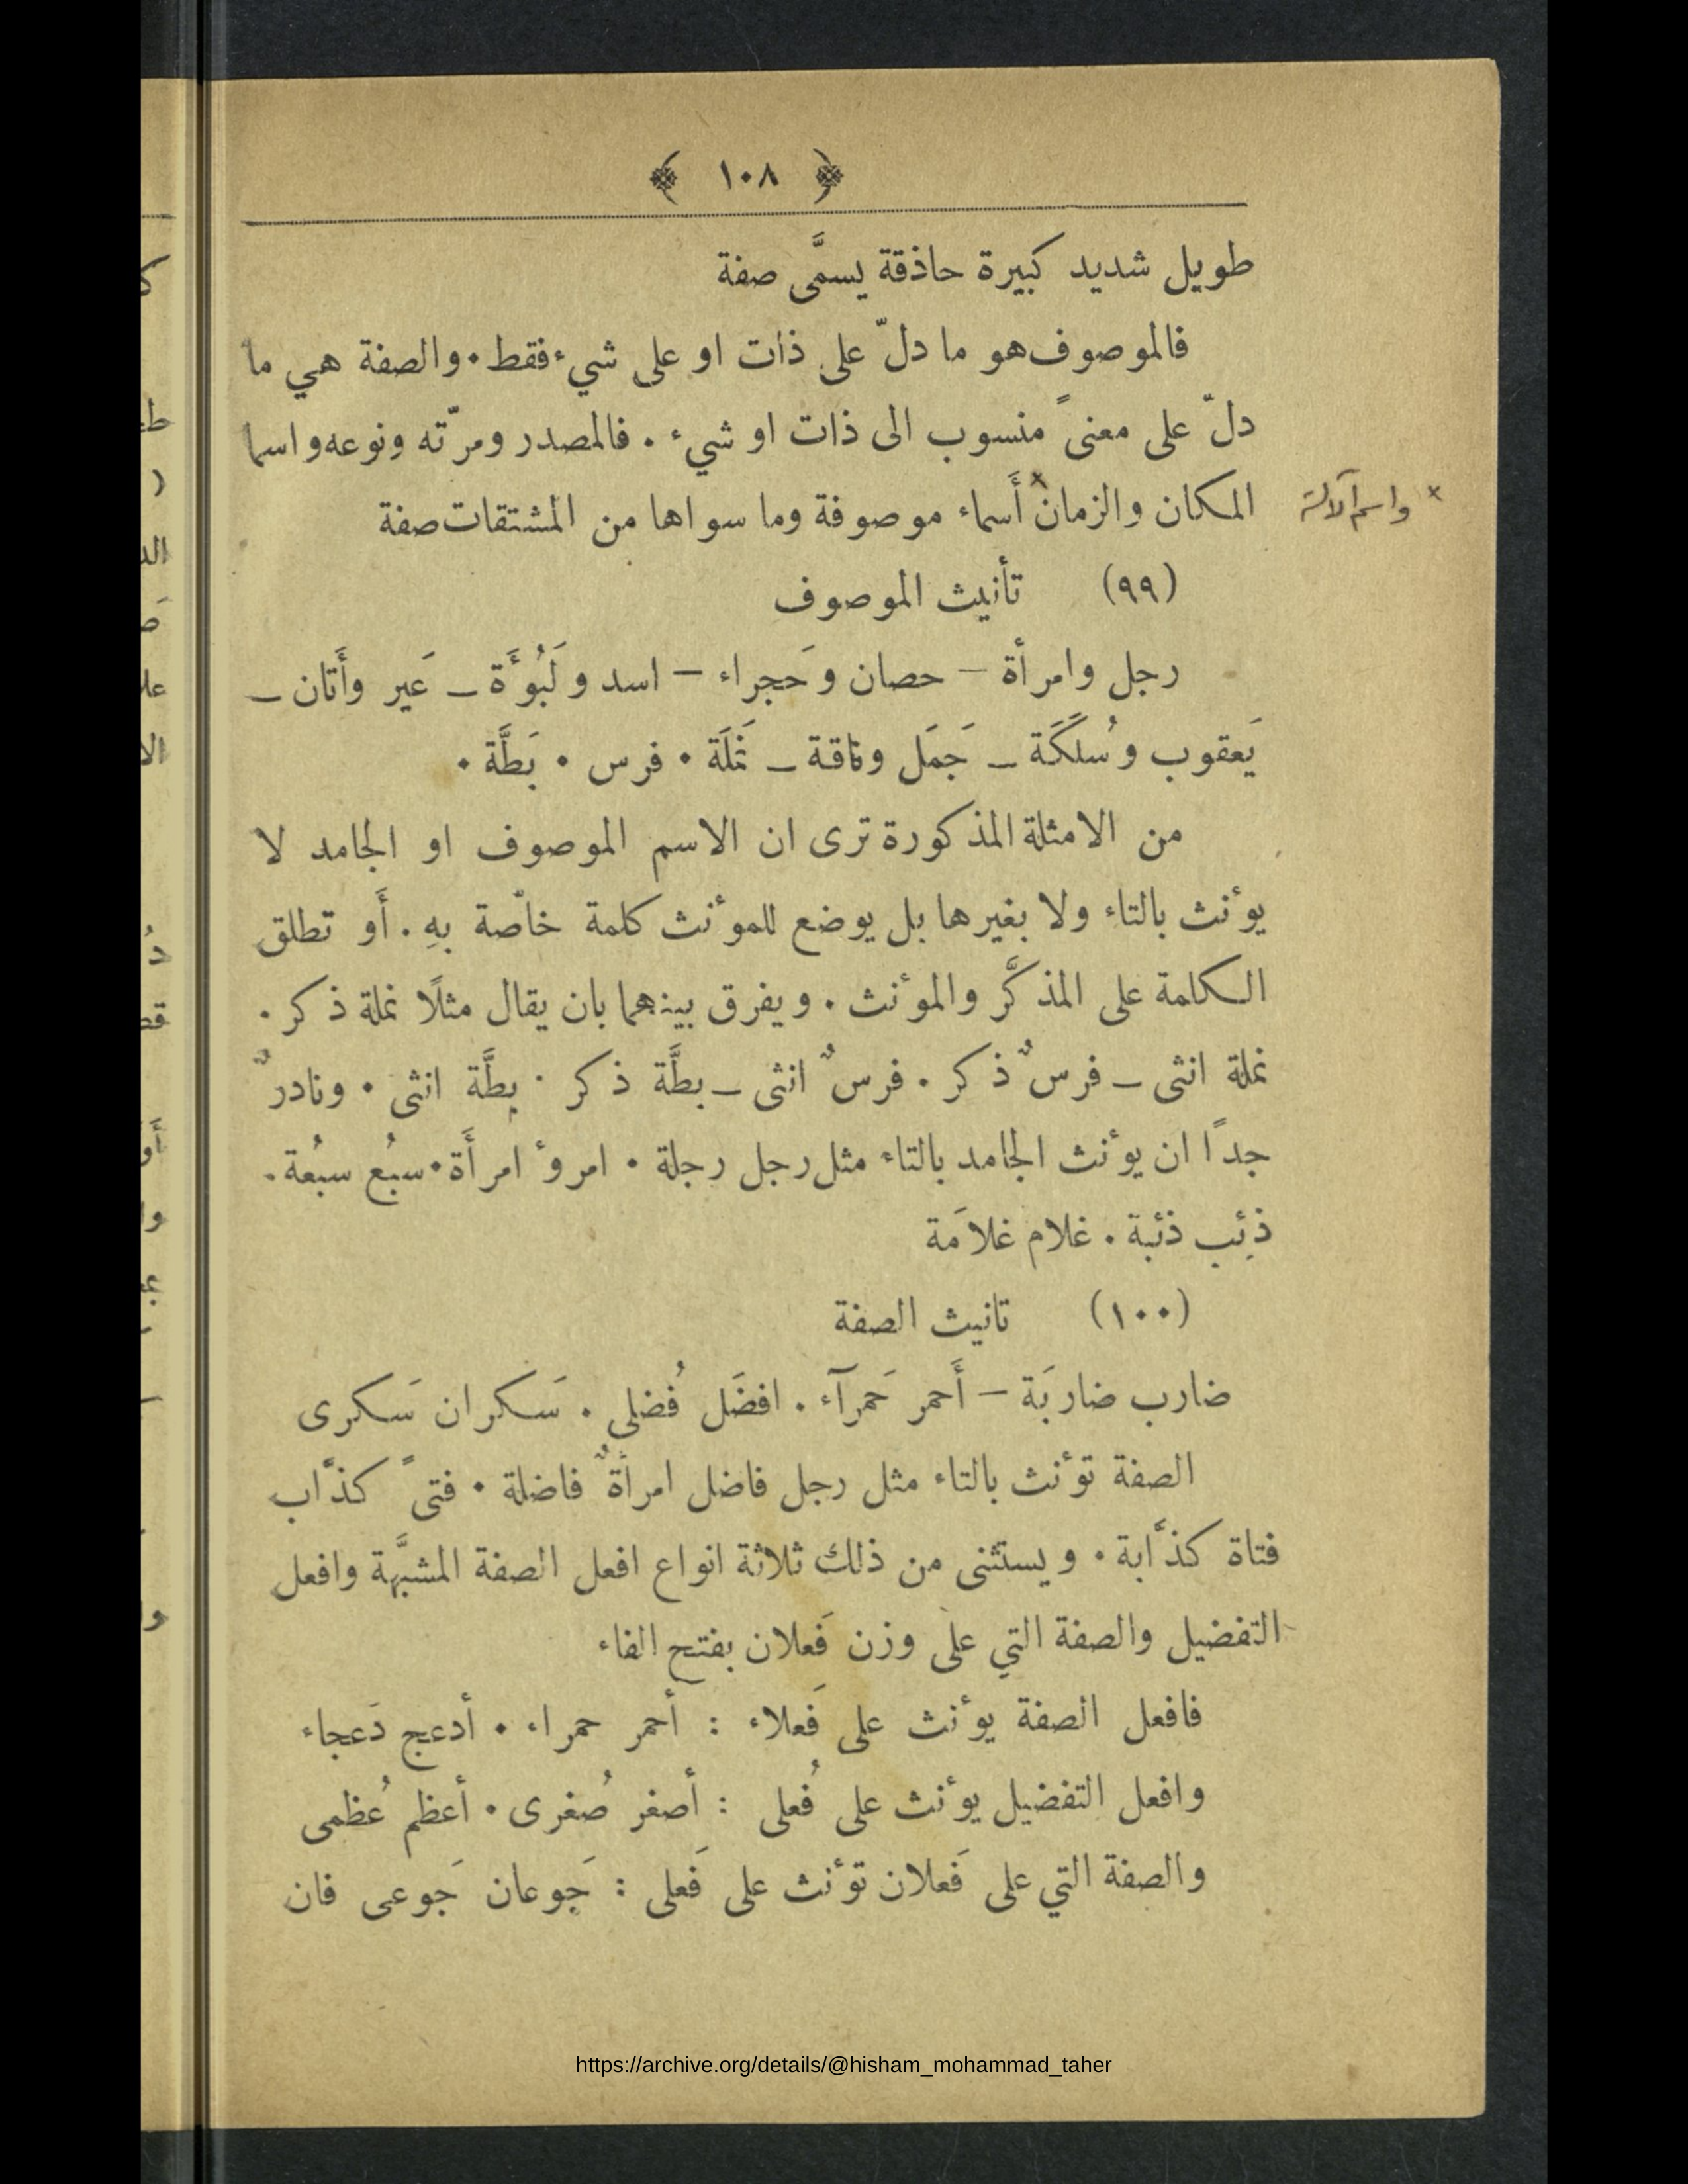 ﴿ ١٠٨ ﴾
طويل شديد كبيرة حاذقة يسمَّى صفة
فالموصوف هو ما دلّ على ذات او على شيء فقط . والصفة هي ما
دلّ على معنىً منسوب الى ذات او شيء . فالمصدر ومرّته ونوعه واسما
المكان والزمان× أَسماء موصوفة وما سواها من المشتقات صفة
× واسم الآلة
(٩٩) تأنيث الموصوف
رجل وامرأة – حصان وحَجراء – اسد ولَبُوَّة – عَير وأَتان –
يَعقوب وسُلَكَة – جَمَل وناقة – نَملَة . فرس . بَطَّة .
من الامثلة المذكورة ترى ان الاسم الموصوف او الجامد لا
يوٴنث بالتاء ولا بغيرها بل يوضع للموٴنث كلمة خاصّة بهِ . أَو تطلق
الكلمة على المذكَّر والموٴنث . ويفرق بينهما بان يقال مثلًا نملة ذكر .
نملة انثى – فرسٌ ذكر . فرسٌ انثى – بطَّة ذكر . بطَّة انثى . ونادرٌ
جدًا ان يوٴنث الجامد بالتاء مثل رجل رجلة . امروٴ امرأَة . سبُع سبُعة .
ذِئب ذئبة . غلام غلامَة
(١٠٠) تانيث الصفة
ضارب ضاربَة – أَحمر حَمرآء . افضَل فُضلى . سَكران سَكرى
الصفة توٴنث بالتاء مثل رجل فاضل امرأةٌ فاضلة . فتىً كذَّاب
فتاة كذَّابة . ويستثنى من ذلك ثلاثة انواع افعل الصفة المشبَّهة وافعل
التفضيل والصفة التي على وزن فَعلان بفتح الفاء
فافعل الصفة يوٴنث على فَعلاء : أحمر حمراء . أدعج دَعجاء
وافعل التفضيل يوٴنث على فُعلى : أصغر صُغرى . أعظم عُظمى
والصفة التي على فَعلان توٴنث على فَعلى : جَوعان جَوعى فان
https://archive.org/details/@hisham_mohammad_taher